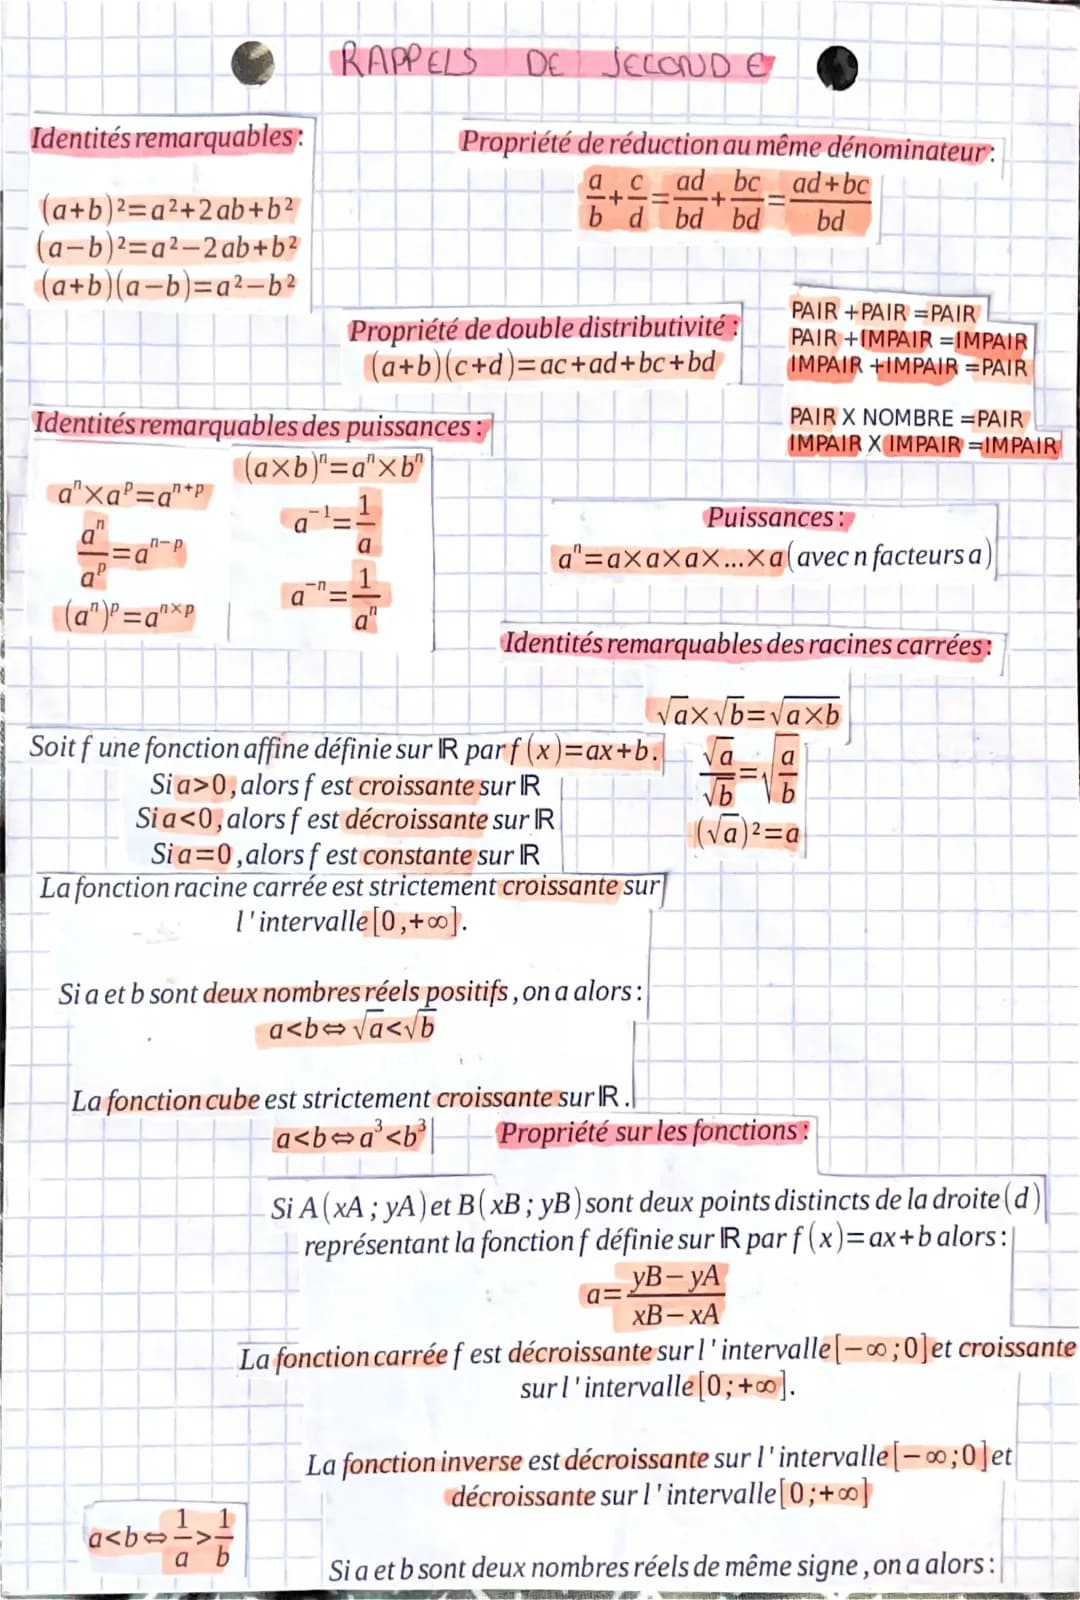 RAPPELS DE SECONDE
Identités remarquables :
(a+b)²=a²+2ab+b²
(a−b)²=a²−2ab+b²
(a+b)(a−b)=a²−b²
Propriété de réduction au même dénominateur :
a/b + c/d = ad/bd + bc/bd = ad+bc/bd
Propriété de double distributivité :
(a+b)(c+d)=ac+ad+bc+bd
PAIR +PAIR =PAIR
PAIR +IMPAIR =IMPAIR
IMPAIR +IMPAIR =PAIR
PAIR X NOMBRE =PAIR
IMPAIR X IMPAIR =IMPAIR
Identités remarquables des puissances :
aⁿ×aᵖ=aⁿ⁺ᵖ
aⁿ/aᵖ=aⁿ⁻ᵖ
(aⁿ)ᵖ=aⁿˣᵖ
(a×b)ⁿ=aⁿ×bⁿ
a⁻¹=1/a
a⁻ⁿ=1/aⁿ
Puissances :
aⁿ=a×a×a×...×a(avec n facteurs a)
Identités remarquables des racines carrées :
√a×√b=√a×b
√a/√b=√a/b
(√a)²=a
Soit f une fonction affine définie sur ℝ par f(x)=ax+b.
Si a>0, alors f est croissante sur ℝ
Si a<0, alors f est décroissante sur ℝ
Si a=0, alors f est constante sur ℝ
La fonction racine carrée est strictement croissante sur
l'intervalle [0,+∞].
Si a et b sont deux nombres réels positifs, on a alors :
a<b⇔√a<√b
La fonction cube est strictement croissante sur ℝ.
a<b⇔a³<b³
Propriété sur les fonctions :
Si A(xA ; yA) et B(xB ; yB) sont deux points distincts de la droite (d)
représentant la fonction f définie sur ℝ par f(x)=ax+b alors :
a=yB−yA/xB−xA
La fonction carrée f est décroissante sur l'intervalle [−∞;0] et croissante
sur l'intervalle [0;+∞].
La fonction inverse est décroissante sur l'intervalle [−∞;0] et
décroissante sur l'intervalle [0;+∞]
Si a et b sont deux nombres réels de même signe, on a alors :
a<b⇔1/a>1/b